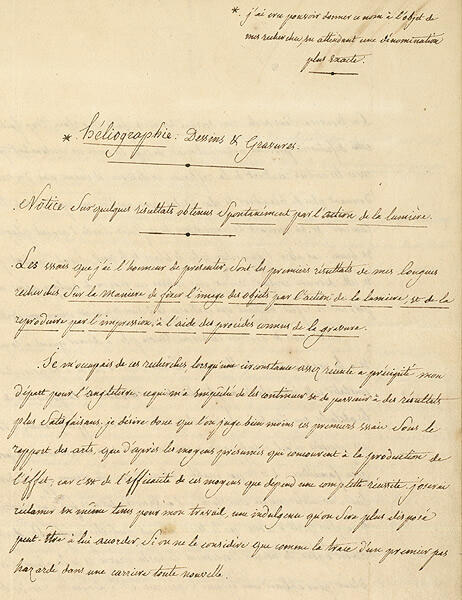 *. j'ai cru pouvoir donner ce nom à l'objet de
mes recherches, en attendant une dénomination
plus exacte.
* héliographie. Dessins & Gravures.
Notice sur quelques résultats obtenus spontanément par l'action de la lumière.
Les essais que j'ai l'honneur de présenter, sont les premiers résultats de mes longues
recherches sur la manière de fixer l'image des objets par l'action de la lumière, et de la
reproduire par l'impression, à l'aide des procédés connus de la gravure.
Je m'occupais de ces recherches lorsqu'une circonstance assez récente a précipité mon
départ pour l'angleterre, ce qui m'a empêché de les continuer et de parvenir à des résultats
plus satisfaisans. je désire donc que l'on juge bien moins ces premiers essais sous le
rapport des arts, que d'après les moyens présumés qui concourent à la production de
l'effet; car c'est de l'éfficacité de ces moyens que dépend une complette réussite. j'oserai
réclamer en même tems pour mon travail, une indulgence qu'on sera plus disposé
peut-être à lui accorder si on ne le considère que comme la trace d'un premier pas
hazardé dans une carrière toute nouvelle.